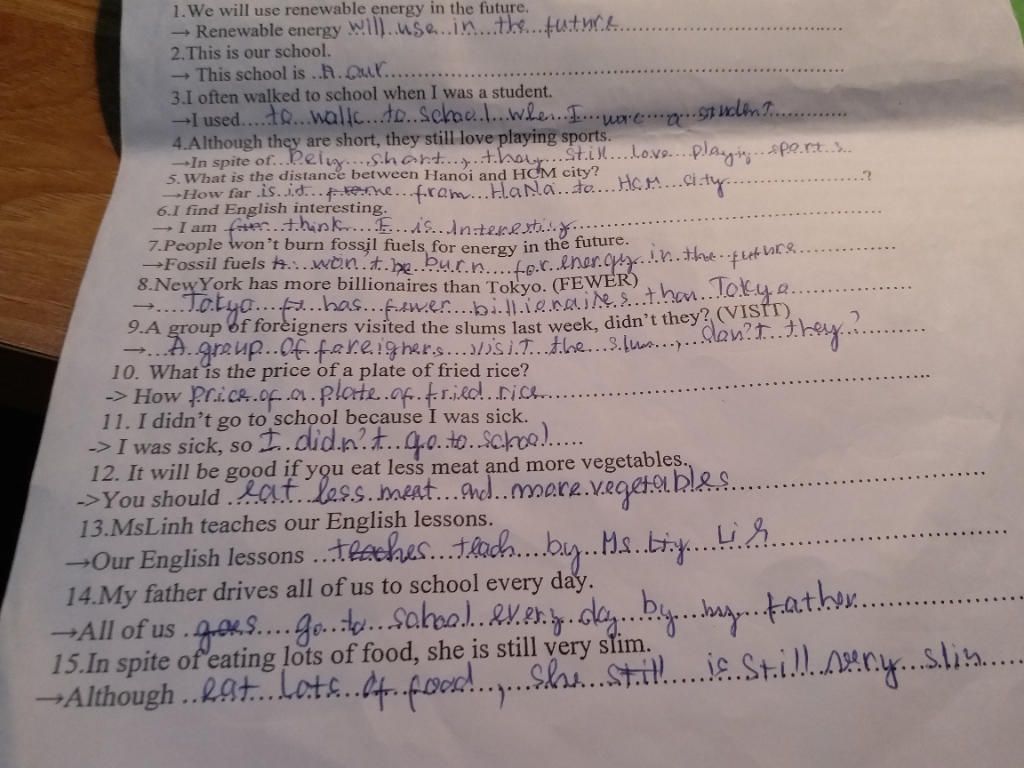 1.We will use renewable energy in the future.
→ Renewable energy will..use...in...the...future
2.This is our school.
→ This school is ..A our
3.I often walked to school when I was a student.
→I used....to...walk...to...school...whe..I....a...student
4.Although they are short, they still love playing sports.
→In spite of...Beiy....short..,..they...still...love...playig...sports..
5.What is the distance between Hanoi and HCM city?
→How far .is.it...from...HaNa...to...HCM...city..............?
6.I find English interesting.
→ I am think...E...is..Interestiy
7.People won't burn fossil fuels for energy in the future.
→Fossil fuels won't be burn...for.energy..in..the..future
8.NewYork has more billionaires than Tokyo. (FEWER)
→....Tokyo...has...fewer...billionaires..than..Tokyo
9.A group of foreigners visited the slums last week, didn't they? (VISIT)
→...A.group..of.foreighers...visit...the...slum..,..don't...they?
10. What is the price of a plate of fried rice?
-> How price.of.a.plate.of.fried.rice
11. I didn't go to school because I was sick.
-> I was sick, so I..didn't..go.to..school.....
12. It will be good if you eat less meat and more vegetables.
->You should ..eat..less.meat...and..more.vegetables
13.MsLinh teaches our English lessons.
→Our English lessons ...teaches...teach....by...Ms...Lih
14.My father drives all of us to school every day.
→All of us .goes....go..to..school..every.day...by...my...father
15.In spite of eating lots of food, she is still very slim.
→Although ..eat..lots..of..food..,...she..still....is.still..very...slin